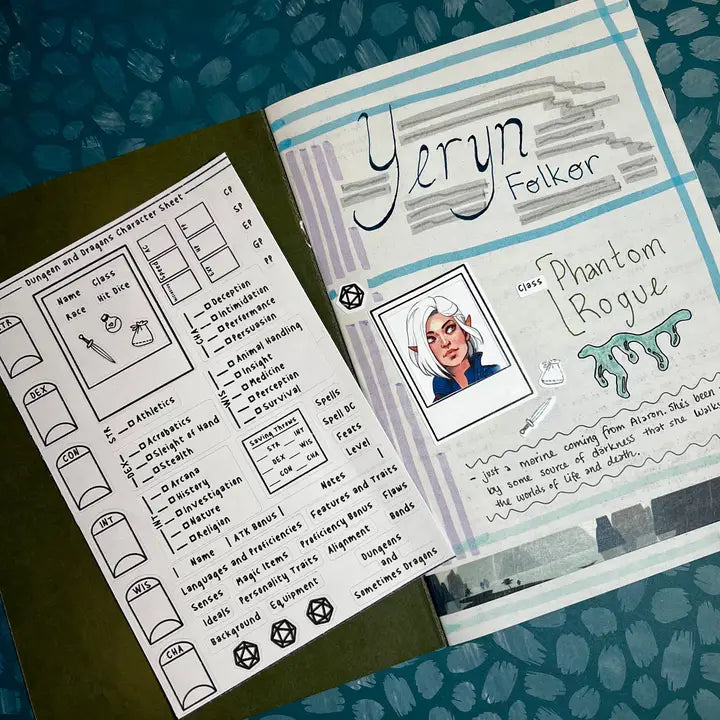 Dungeon and Dragons Character Sheet
STR
DEX
CON
INT
WIS
CHA
Name Class
Race Hit Dice
AC
Speed
HP
CP
SP
EP
GP
PP
CHA
Deception
Intimidation
Performance
Persuasion
WIS
Animal Handling
Insight
Medicine
Perception
Survival
STR
Athletics
DEX
Acrobatics
Sleight of Hand
Stealth
INT
Arcana
History
Investigation
Nature
Religion
Saving Throws
STR INT
DEX WIS
CON CHA
Spells
Spell DC
Feats
Level
Name | ATK Bonus | Notes |
Languages and Proficiencies Features and Traits
Senses Magic Items Proficiency Bonus Flaws
Ideals Personality Traits Alignment Bonds
Background Equipment
Dungeons
and
Sometimes Dragons
Yeryn
Folkor
Class
Phantom
Rogue
- just a marine coming from Alaron. She's been
by some source of darkness that she
the worlds of life and death.